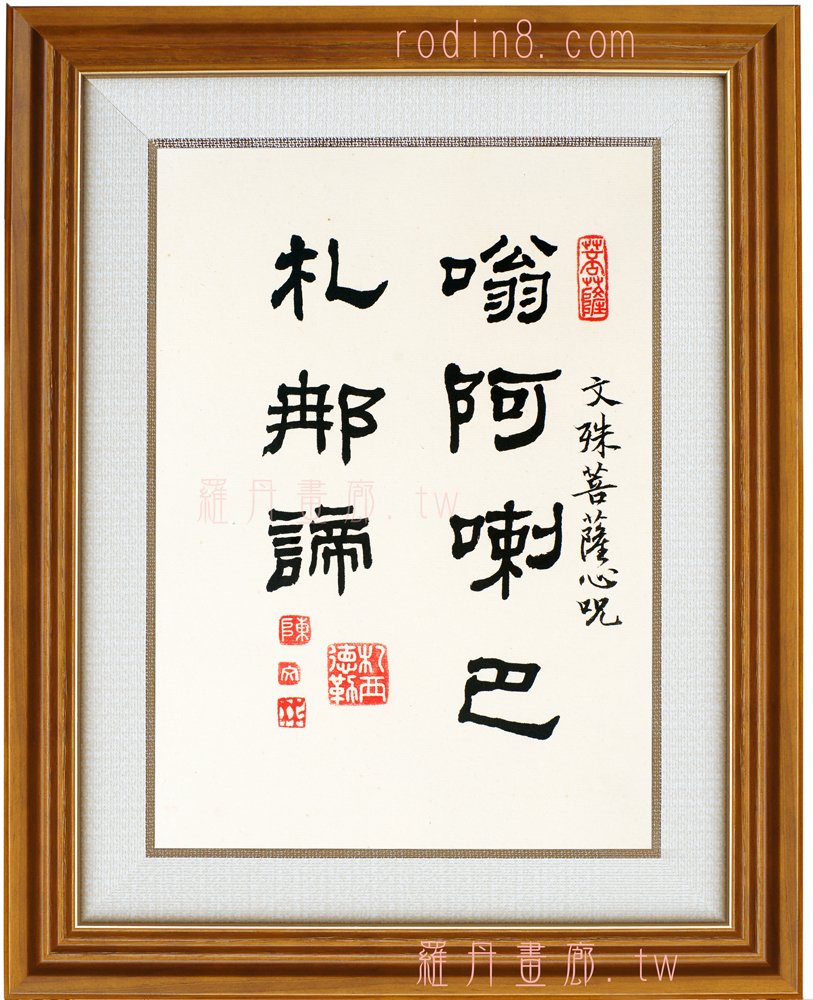 rodin8.com
菩薩
文殊菩薩心咒
嗡阿喇巴
札那諦
羅丹畫廊.tw
札西德勒
陳
文
羅丹畫廊.tw